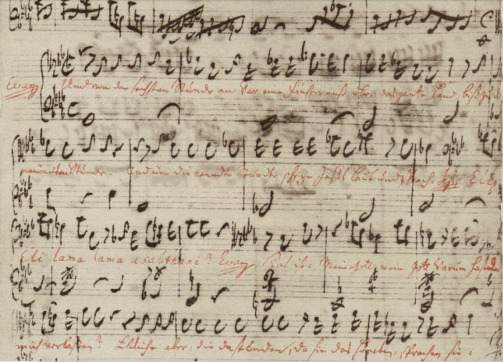 Evang Und von der sechsten Stunde an war eine Finsterniß über das gantze Land, biß zu der
neundten Stunde. Und um die neundte Stunde schrie Jesus laut und sprach. Eli,
Eli lama lama asabthani? Evang Das ist: Mein Gott, mein Gott warum hastu
mich verlaßen? Etliche aber, die da stunden, da sie das höreten, sprachen sie: